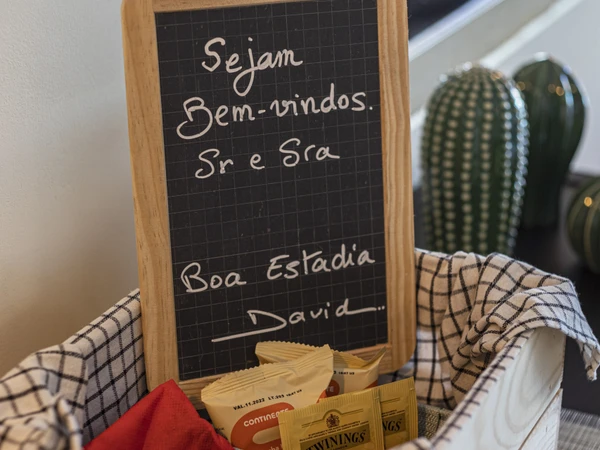 Sejam
Bem-vindos.
Sr e Sra
Boa Estadia
David
VAL.17.2022
CONTINENTE
TWININGS